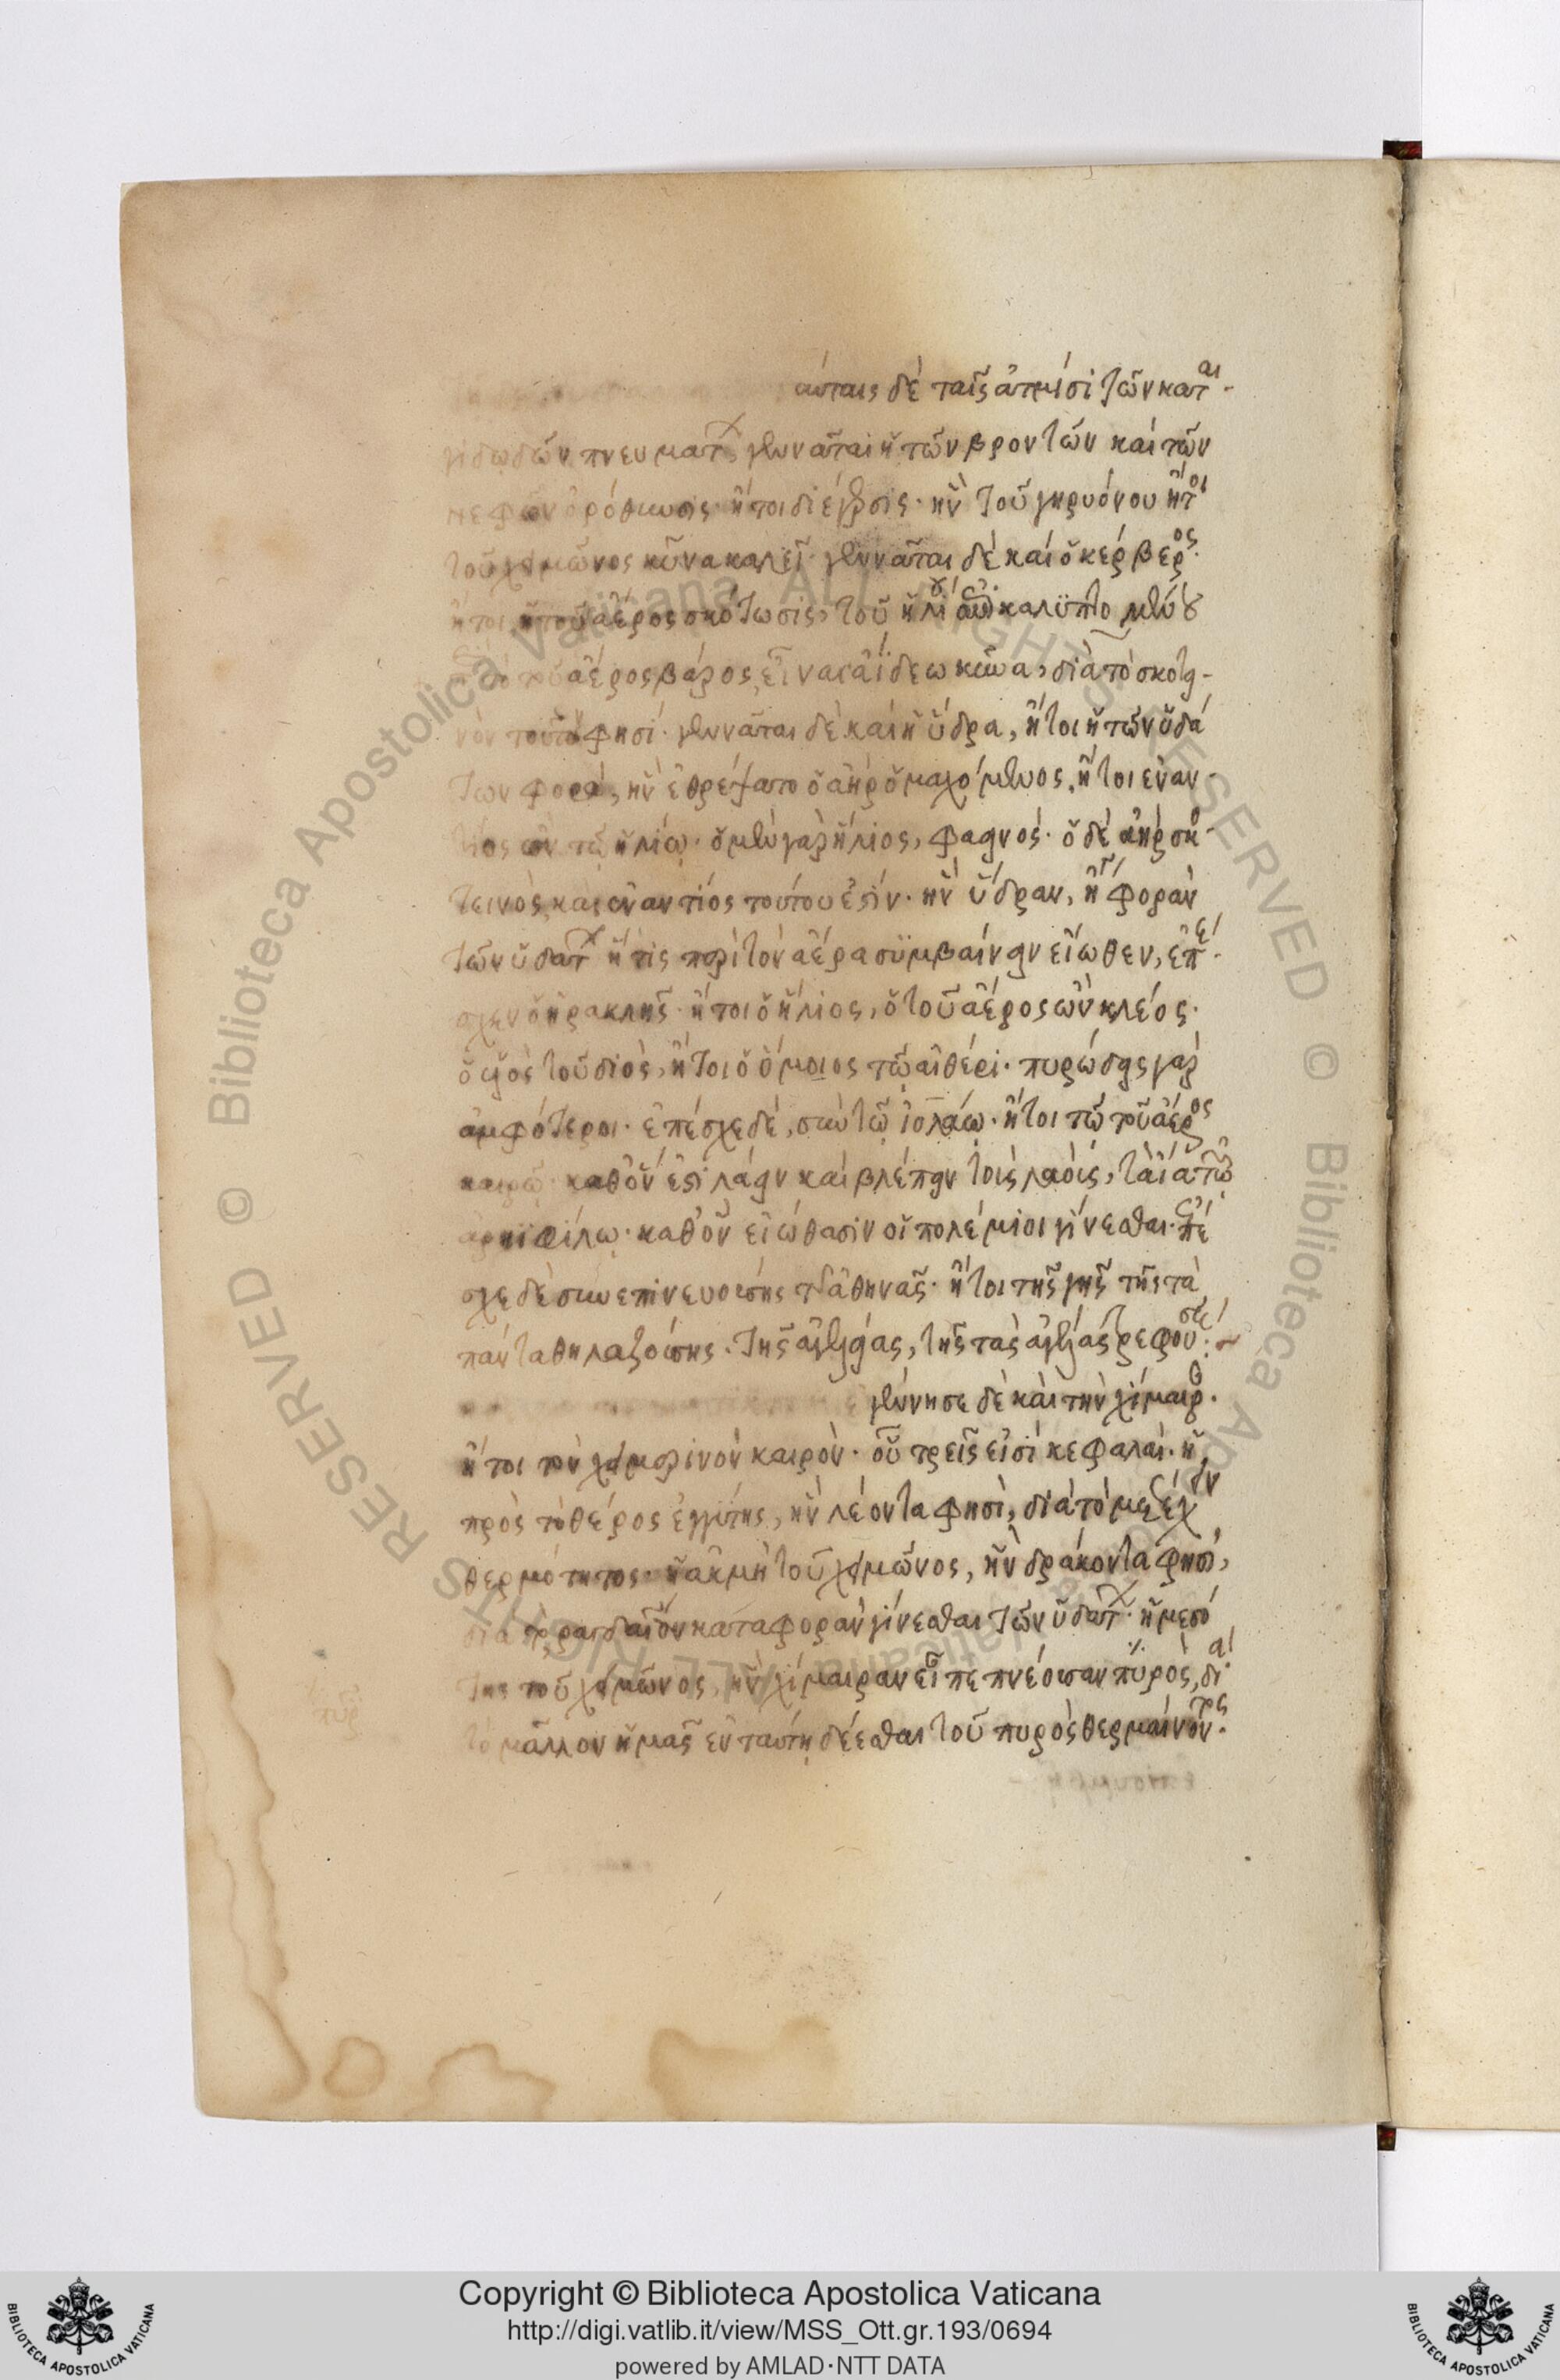 αύταις δὲ ταῖς ἀτμίσι τῶν καται-
γιδωδῶν πνευμάτων, γεννᾶται ἡ τῶν βροντῶν καὶ τῶν
νεφῶν ὀρόθευσις· ἤτοι διέγερσις· ἣν τοῦ γηρυόνου ἤτοι
τοῦ χειμῶνος κύνα καλεῖ· γεννᾶται δὲ καὶ ὁ κέρβερος·
ἤτοι ἡ τοῦ ἀέρος σκότωσις, τοῦ ἡλίου ἐπικαλυπτομένου
τοῦ ἀέρος βάρος, εἶναι ἀΐδεω κύνα, διὰ τὸ σκοτει-
νὸν τοῦτό φησί· γεννᾶται δὲ καὶ ἡ ὕδρα, ἤτοι ἡ τῶν ὑδά
των φορά, ἣν ἐθρέψατο ὁ ἀὴρ ὁ μαχόμενος, ἤτοι ἐναν-
τίος ὢν τῷ ἡλίῳ· ὁ μὲν γὰρ ἥλιος, φαεινός· ὁ δὲ ἀὴρ σκο-
τεινὸς καὶ ἐναντίος τούτου ἐστίν· ἣν ὕδραν, ἤτοι φορὰν
τῶν ὑδάτων ἥτις περὶ τὸν ἀέρα συμβαίνειν εἴωθεν, ἐπέ-
σχεν ὁ ἡρακλῆς· ἤτοι ὁ ἥλιος, ὁ τοῦ ἀέρος ὢν κλέος·
ὁ υἱὸς τοῦ διὸς, ἤτοι ὁ ὅμοιος τῷ αἰθέρι· πυρώδεις γὰρ
ἀμφότεροι· ἐπέσχε δὲ, σὺν τῷ ἰολάῳ· ἤτοι τῷ τοῦ ἀέρος
καιρῷ· καθ' ὃν ἐστὶ λάειν καὶ βλέπειν τοῖς λαοῖς,
ἀρηϊφίλῳ· καθ' ὃν εἰώθασιν οἱ πολέμιοι γίνεσθαι· ἐπέ
σχε δὲ συνεπινευούσης τῆς ἀθηνᾶς· ἤτοι τῆς γῆς τῆς τὰ
πάντα θηλαζούσης· τῆς ἀγελείας, τῆς τὰς ἀγέλας τρεφούσης:~
γέννησε δὲ καὶ τὴν χίμαιραν·
ἤτοι τὸν χειμερινὸν καιρὸν· οὗ τρεῖς εἰσὶ κεφαλαί· ἡ
πρὸς τὸ θέρος ἐγγύτης, ἣν λέοντα φησὶ, διὰ τὸ μετέχειν
θερμότητος· ἡ ἀκμὴ τοῦ χειμῶνος, ἣν δράκοντα φησὶ,
διὰ τὸ ῥαγδαῖον καταφορὰν γίνεσθαι τῶν ὑδάτων· ἡ μεσό
της τοῦ χειμῶνος, ἣν χίμαιραν εἶπε πνέουσαν πυρὸς, διὰ
τὸ μᾶλλον ἡμᾶς ἐν ταύτῃ δέεσθαι τοῦ πυρὸς θερμαίνοντος·
πῦρ
Copyright © Biblioteca Apostolica Vaticana
http://digi.vatlib.it/view/MSS_Ott.gr.193/0694
powered by AMLAD·NTT DATA
BIBLIOTECA APOSTOLICA VATICANA
BIBLIOTECA APOSTOLICA VATICANA
© Biblioteca Apostolica Vaticana ALL RIGHTS RESERVED
© Biblioteca Apostolica Vaticana ALL RIGHTS RESERVED